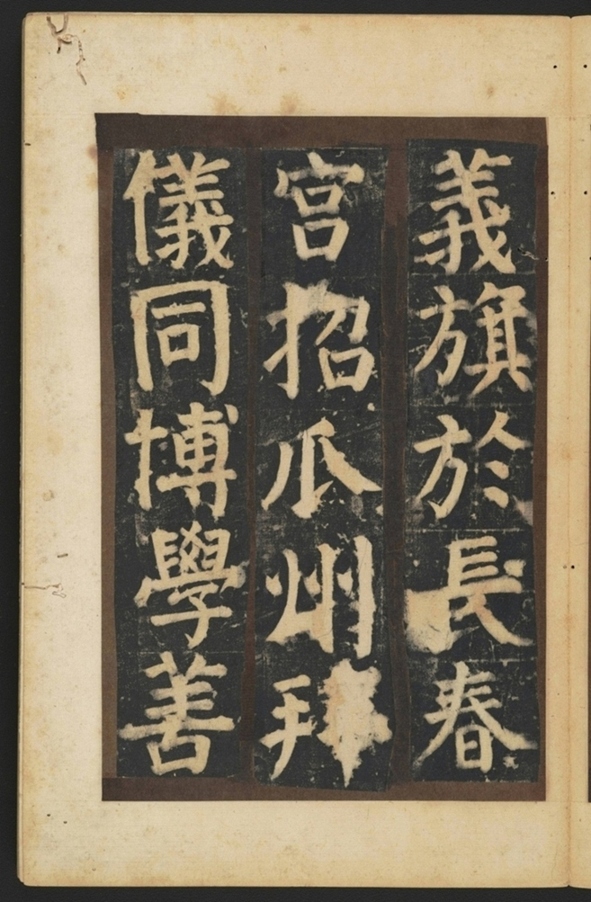 義旗於長春
宮招瓜州拜
儀同博學善